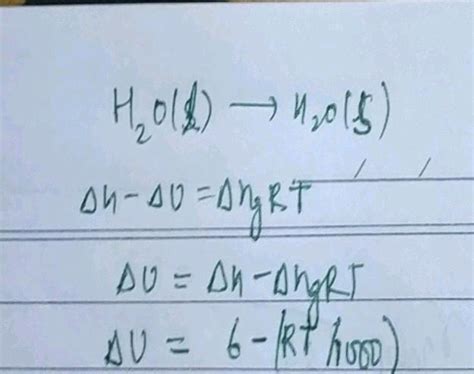 H₂O(l) → H₂O(s)
Δh - ΔU = ΔngRT
ΔU = Δh - ΔngRT
ΔU = 6 - (RT/1000)